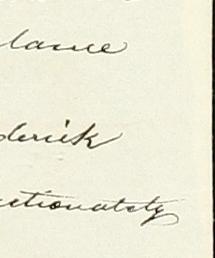 lance
derick
ctionately